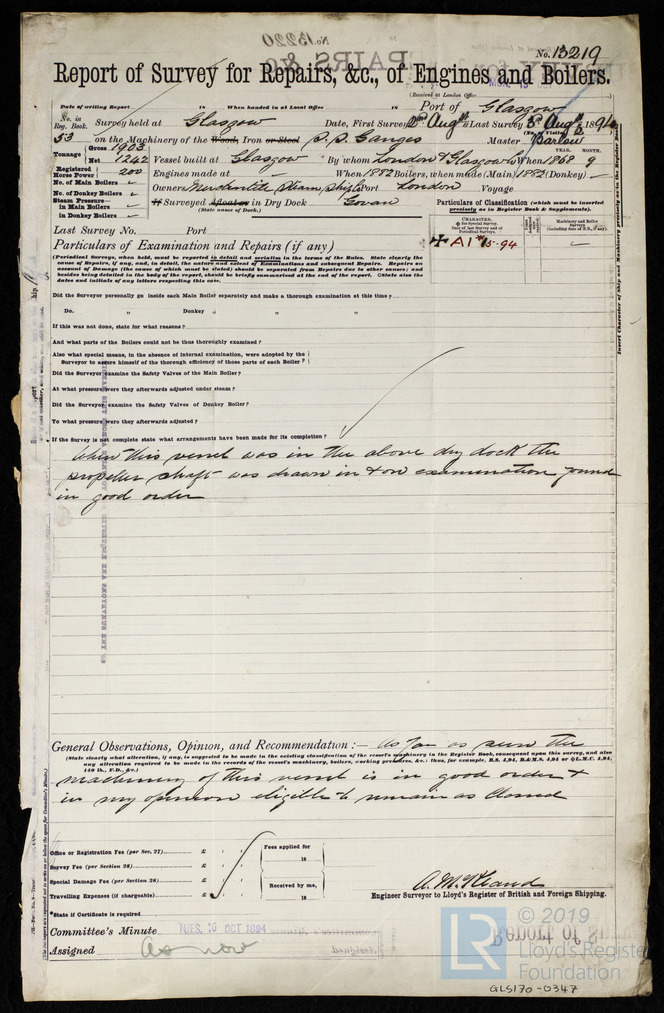 No. 13219
Report of Survey for Repairs, &c., of Engines and Boilers.
(Received at London Office
Date of writing Report 18 When handed in at Local Office 18 Port of Glasgow
No. in Reg. Book. Survey held at Glasgow Date, First Survey 2nd Augt Last Survey 3rd Augt 1894
53 on the Machinery of the Wood, Iron or Steel S.S. Ganges Master Barlow
Tonnage Gross 1903
Net 1242 Vessel built at Glasgow By whom London & Glasgow Co When 1868 9
YEAR. MONTH.
Registered Horse Power 200 Engines made at — When 1882 Boilers, when made (Main) 1882 (Donkey) —
No. of Main Boilers
No. of Donkey Boilers Owners Merchantile Steam Ship Co Port London Voyage
Steam Pressure— in Main Boilers
in Donkey Boilers
If Surveyed Afloat or in Dry Dock Govan
(State name of Dock.)
Particulars of Classification (which must be inserted precisely as in Register Book & Supplements).
CHARACTER.
Machinery and Boiler Surveys
✠ A1 94
Last Survey No. Port
Particulars of Examination and Repairs (if any)
(Periodical Surveys, when held, must be reported in detail and seriatim in the terms of the Rules. State clearly the
cause of Repairs, if any, and, in detail, the nature and extent of Examinations and subsequent Repairs. Repairs on
account of Damage (the cause of which must be stated) should be separated from Repairs due to other causes; and
besides being detailed in the body of the report, should be briefly summarised at the end of the report. State also the
dates and initials of any letters respecting this case.
Did the Surveyor personally go inside each Main Boiler separately and make a thorough examination at this time?
Do. „ Donkey „ „ „
If this was not done, state for what reasons?
And what parts of the Boilers could not be thus thoroughly examined?
Also what special means, in the absence of internal examination, were adopted by the
Surveyor to assure himself of the thorough efficiency of those parts of each Boiler?
Did the Surveyor examine the Safety Valves of the Main Boiler?
At what pressure were they afterwards adjusted under steam?
Did the Surveyor examine the Safety Valves of Donkey Boiler?
To what pressure were they afterwards adjusted?
If the Survey is not complete state what arrangements have been made for its completion?
When this vessel was in the above dry dock the
propeller shaft was drawn in & on examination found
in good order
General Observations, Opinion, and Recommendation:— As far as seen the
(State clearly what alteration, if any, is suggested to be made in the existing classification of the vessel's machinery in the Register Book, consequent upon this survey, and also
any alteration required to be made in the records of the vessel's machinery, boilers, working pressures, &c.: thus, for example, B.S. 4,94, B.&M.S. 4,94 or L.M.C. 4,94,
140 lb., F.D., &c.)
machinery of this vessel is in good order &
in my opinion eligible to remain as Classed
Office or Registration Fee (per Sec. 27) £
Survey Fee (per Section 28) £
Special Damage Fee (per Section 28) £
Travelling Expenses (if chargeable) £
Fees applied for
18
Received by me,
18
Engineer Surveyor to Lloyd's Register of British and Foreign Shipping.
*State if Certificate is required
Committee's Minute TUES. 16 OCT 1894
Assigned As now
LR © 2019
Lloyd's Register
Foundation
GLS170-0347